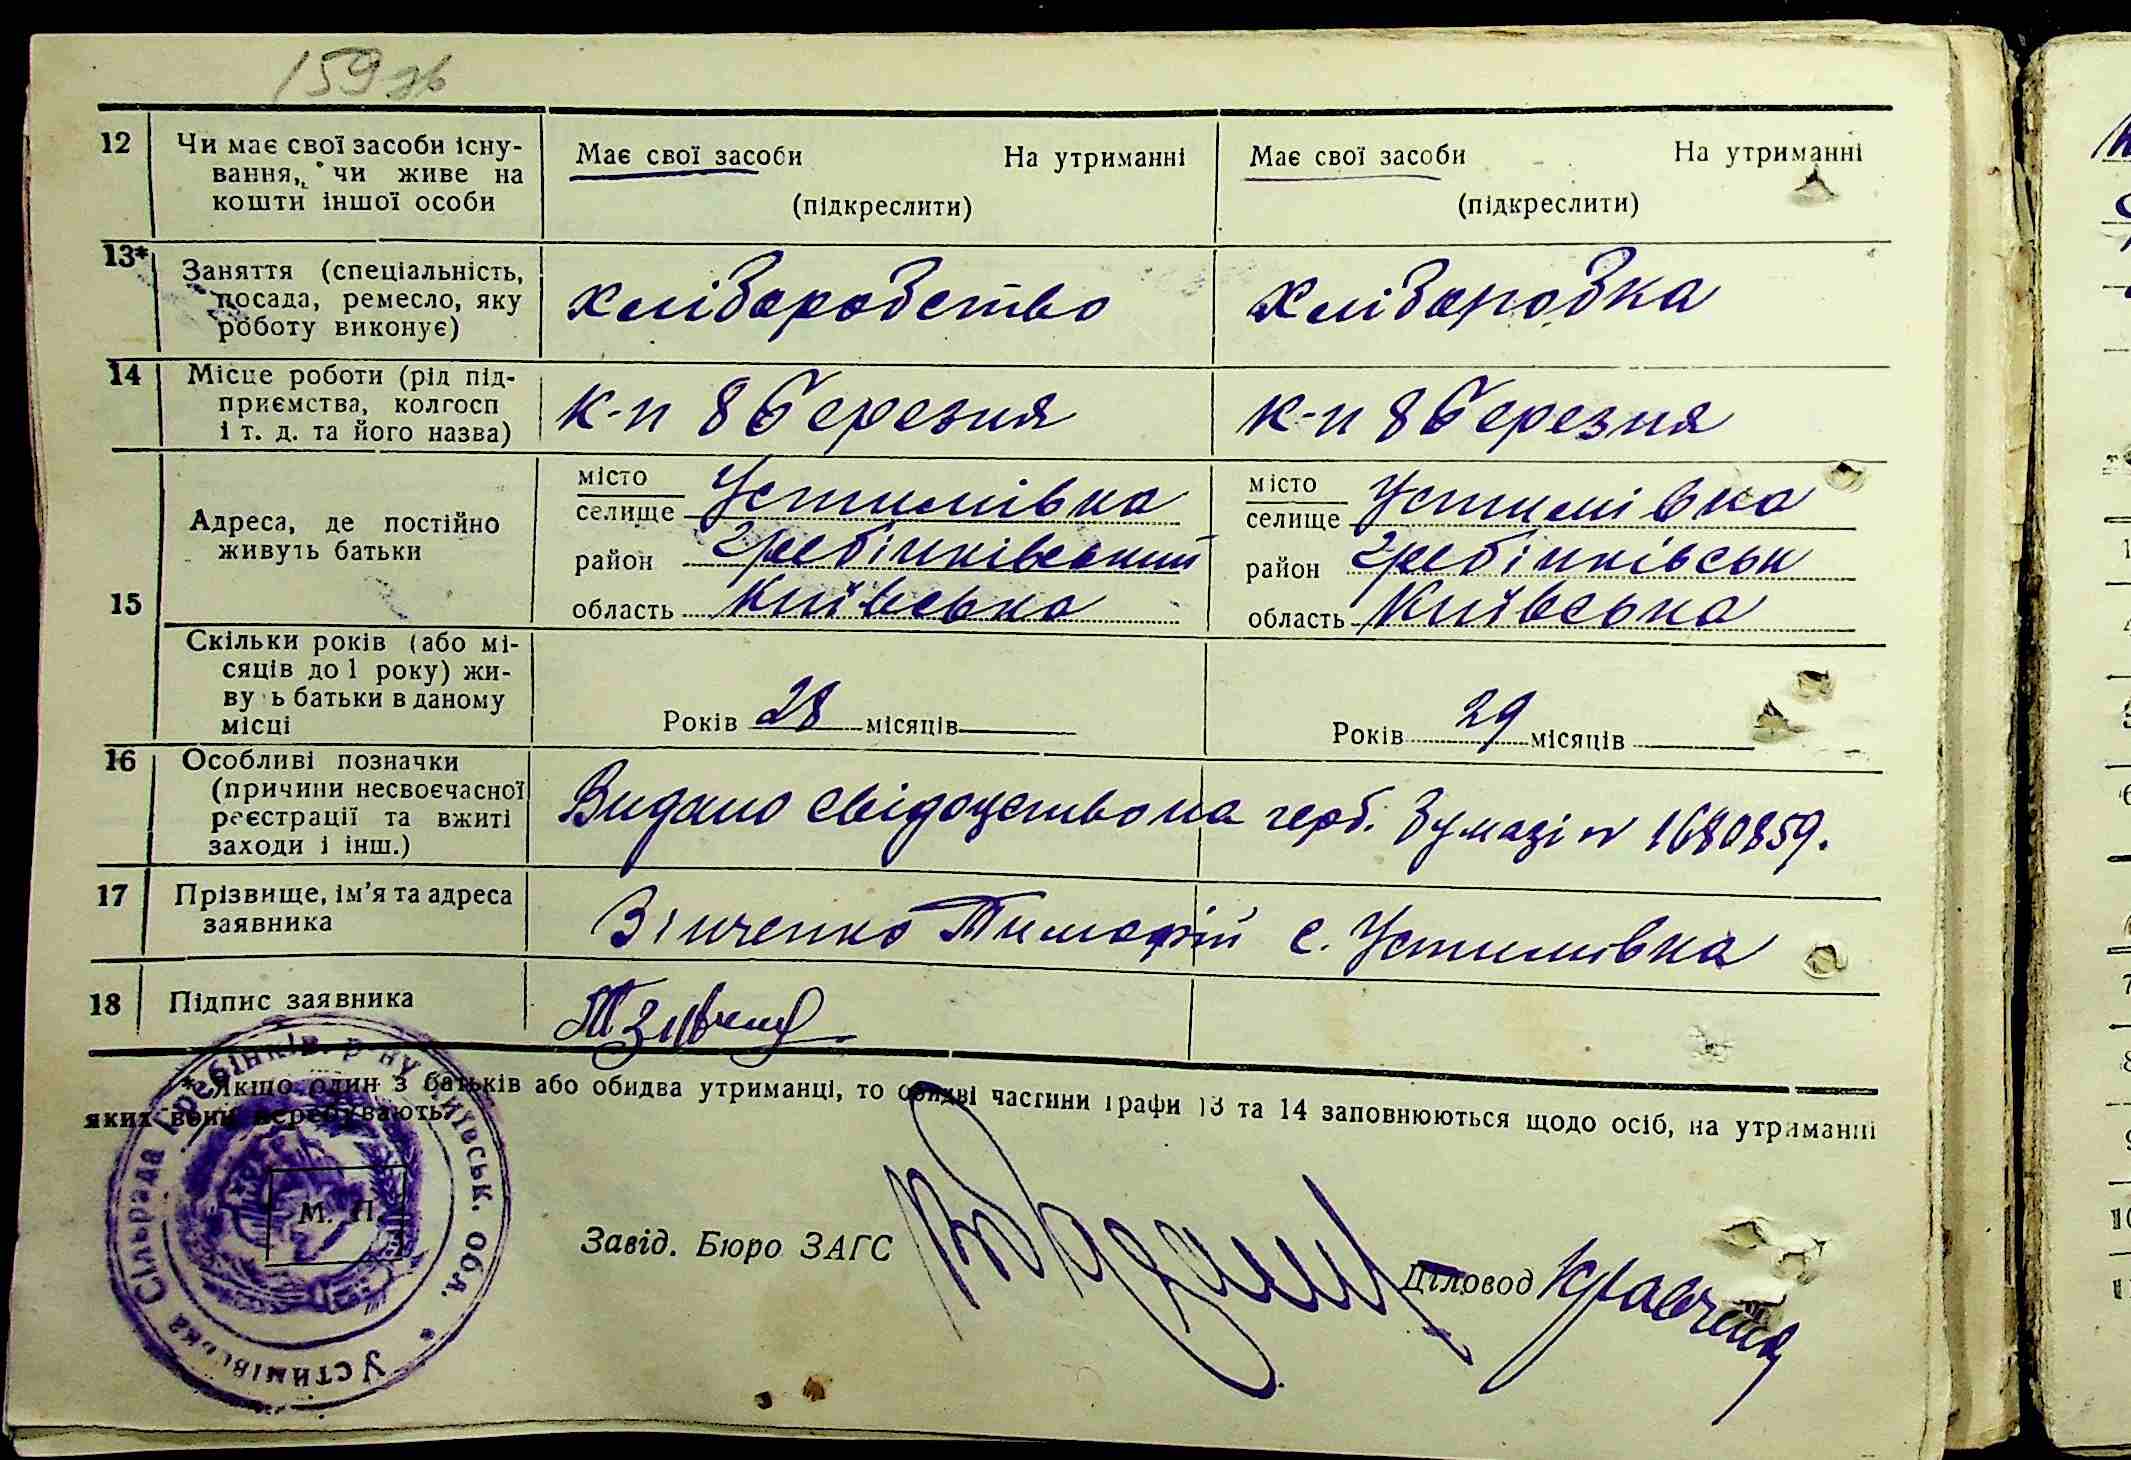 159 зв
12 Чи має свої засоби існу-
вання, чи живе на
кошти іншої особи
Має свої засоби На утриманні
(підкреслити)
Має свої засоби На утриманні
(підкреслити)
13* Заняття (спеціальність,
посада, ремесло, яку
роботу виконує)
хліборобство
хліборобка
14 Місце роботи (рід під-
приємства, колгосп
і т. д. та його назва)
к-п 8 березня
к-п 8 березня
15 Адреса, де постійно
живуть батьки
місто
селище Устимівка
район Гребінківський
область Київська
місто
селище Устимівка
район Гребінківськ
область Київська
Скільки років (або мі-
сяців до 1 року) жи-
ву ь батьки в даному
місці
Років 28 місяців
Років 29 місяців
16 Особливі позначки
(причини несвоєчасної
реєстрації та вжиті
заходи і інш.)
Видано свідоцтво на герб. бумазі № 1680859.
17 Прізвище, ім'я та адреса
заявника
Зінченко Тимофій с. Устимівка
18 Підпис заявника
* Якщо один з батьків або обидва утриманці, то обидві частини графи 13 та 14 заповнюються щодо осіб, на утриманні
яких вони перебувають.
М. П.
Устимівська Сільрада Гребінків. р-ну Київськ. Обл.
Завід. Бюро ЗАГС
Діловод Кравченко